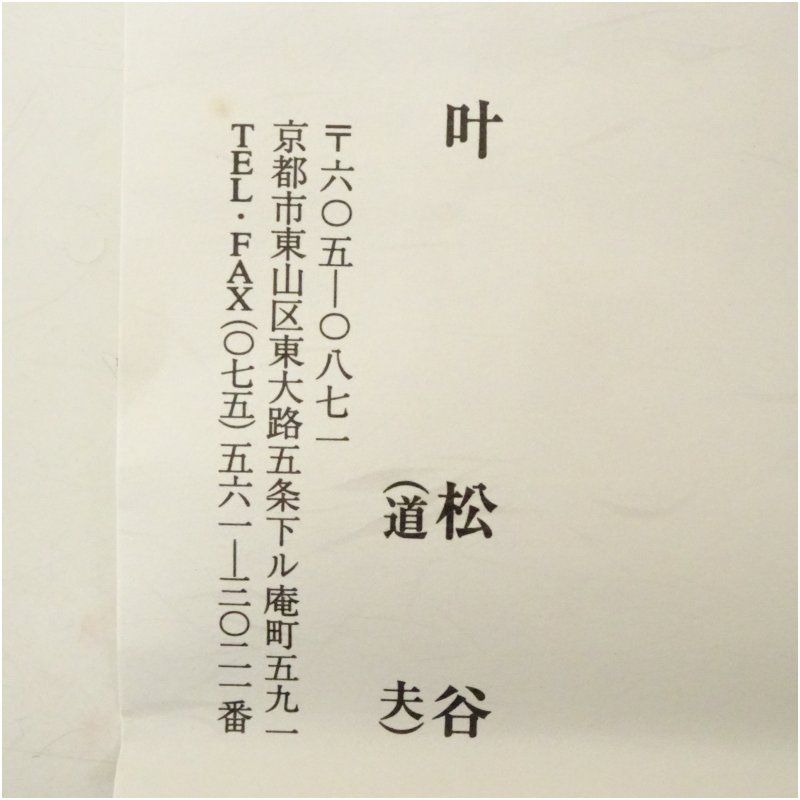 叶 松 谷
(道 夫)
〒六〇五―〇八七一
京都市東山区東大路五条下ル庵町五九一
TEL・FAX(〇七五)五六一―三〇二一番